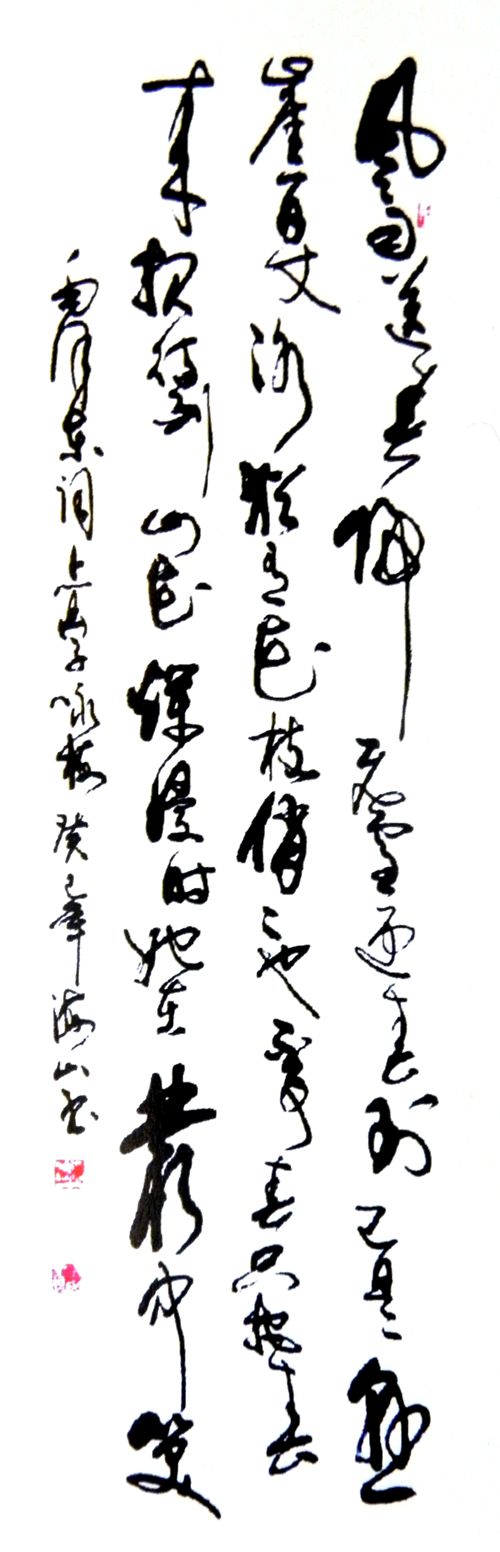 风雨送春归飞雪迎春到已是悬
崖百丈冰犹有花枝俏々也不争春只把春
来报待到山花烂漫时她在叢中笑
毛泽东词卜算子咏梅癸巳年海山书